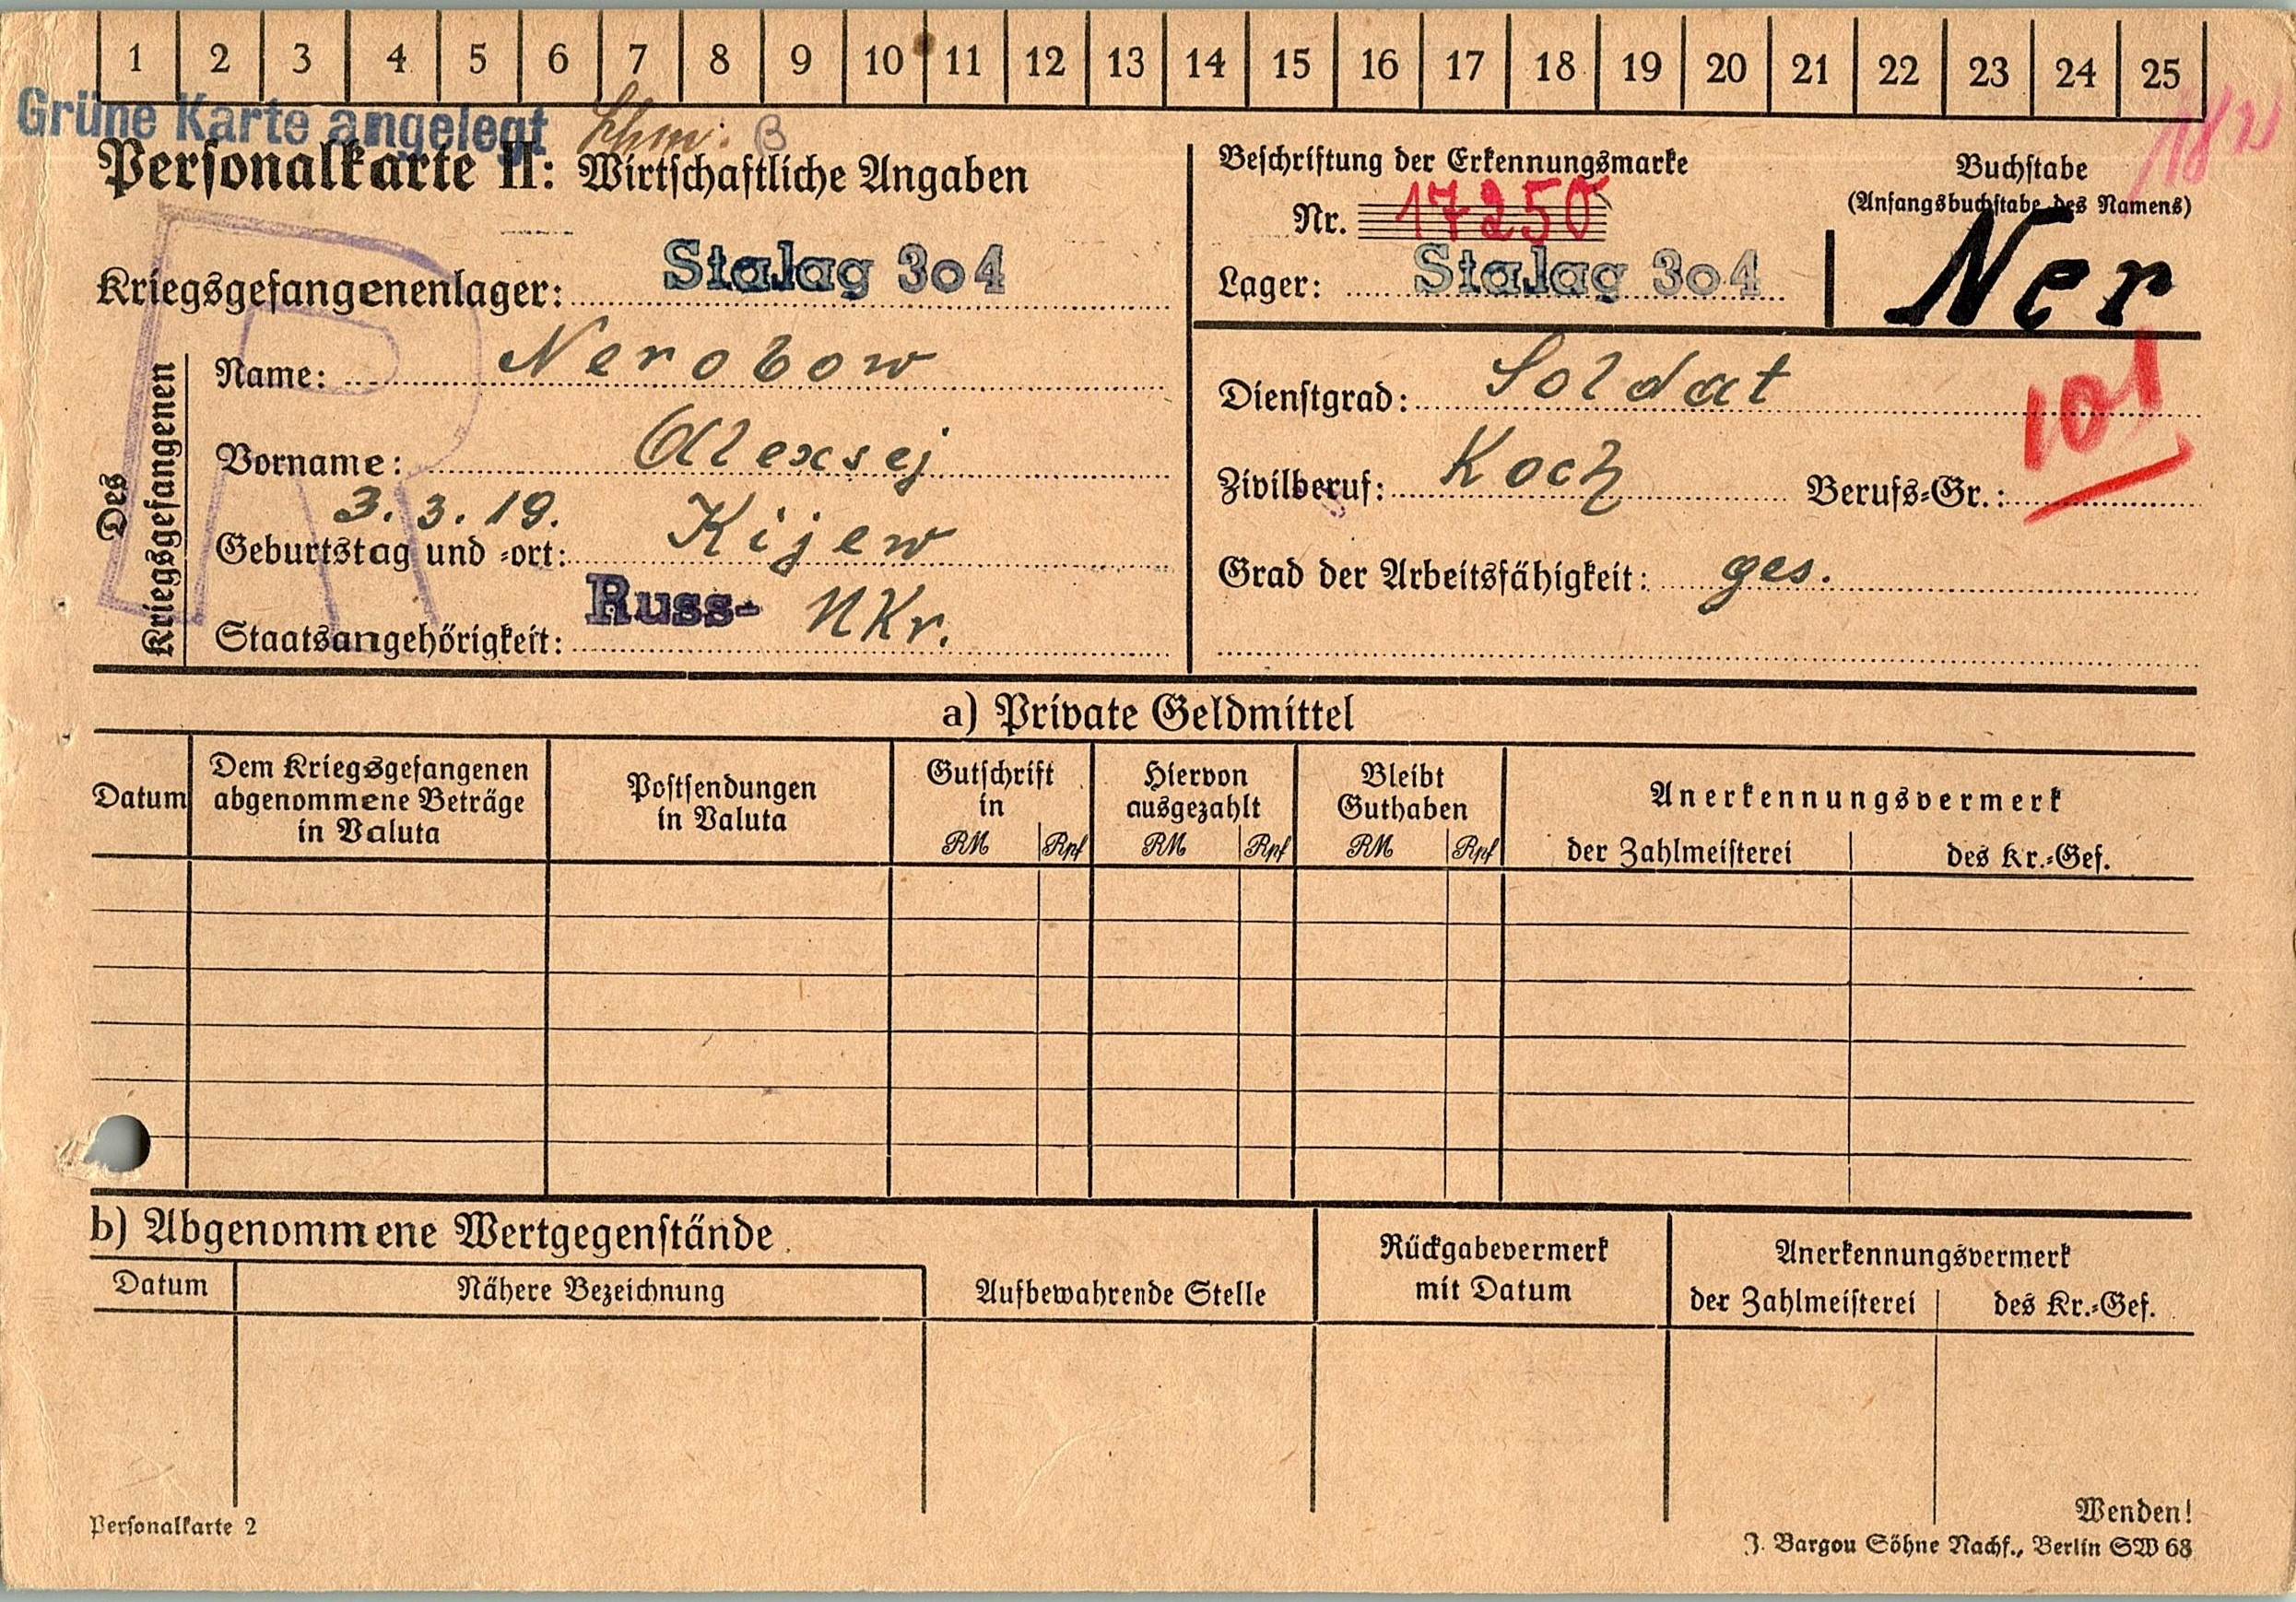 1 2 3 4 5 6 7 8 9 10 11 12 13 14 15 16 17 18 19 20 21 22 23 24 25
Grüne Karte angelegt
B
Personalkarte II: Wirtschaftliche Angaben
Kriegsgefangenenlager: Stalag 304
Beschriftung der Erkennungsmarke
Nr. 17250
Lager: Stalag 304
Buchstabe
(Anfangsbuchstabe des Namens)
Ner
Des Kriegsgefangenen
Name: Nerobow
Vorname: Alexsej
3. 3. 19.
Geburtstag und -ort: Kijew
Staatsangehörigkeit: Russ- Ukr.
Dienstgrad: Soldat
Zivilberuf: Koch Berufs-Gr.: 101
Grad der Arbeitsfähigkeit: ges.
R
a) Private Geldmittel
Datum
Dem Kriegsgefangenen
abgenommene Beträge
in Valuta
Postsendungen
in Valuta
Gutschrift
in
RM Rpf
Hiervon
ausgezahlt
RM Rpf
Bleibt
Guthaben
RM Rpf
Anerkennungsvermerk
der Zahlmeisterei
des Kr.-Gef.
b) Abgenommene Wertgegenstände
Datum
Nähere Bezeichnung
Aufbewahrende Stelle
Rückgabevermerk
mit Datum
Anerkennungsvermerk
der Zahlmeisterei
des Kr.-Gef.
Personalkarte 2
Wenden!
J. Bargou Söhne Nachf., Berlin SW 68